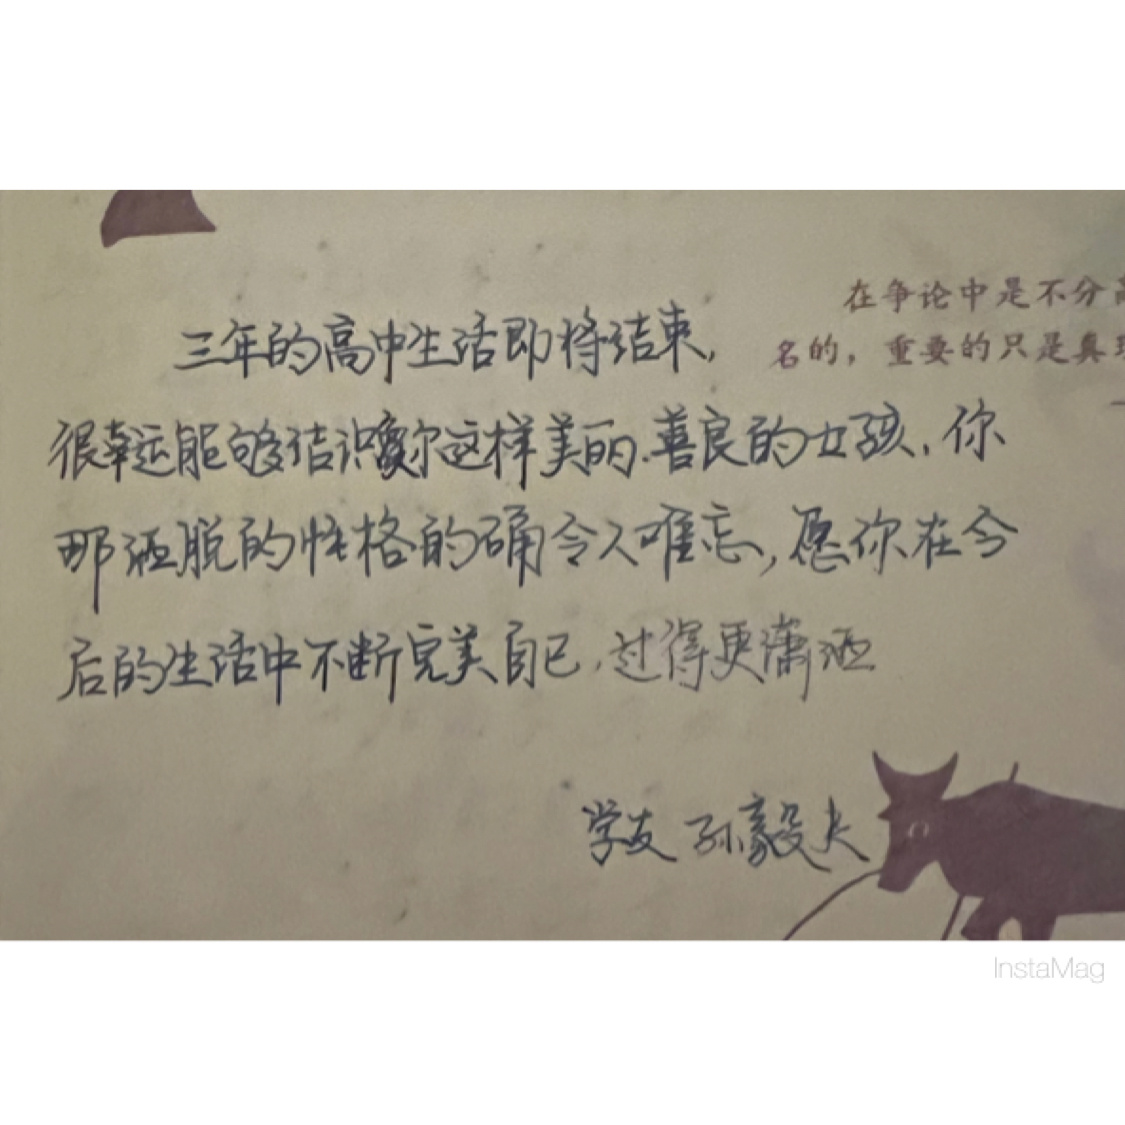 在争论中是不分高
名的，重要的只是真理
三年的高中生活即将结束，
很幸运能够结识你这样美丽.善良的女孩，你
那洒脱的性格的确令人难忘，愿你在今
后的生活中不断完美自己，过得更潇洒
学友 孙毅夫
InstaMag